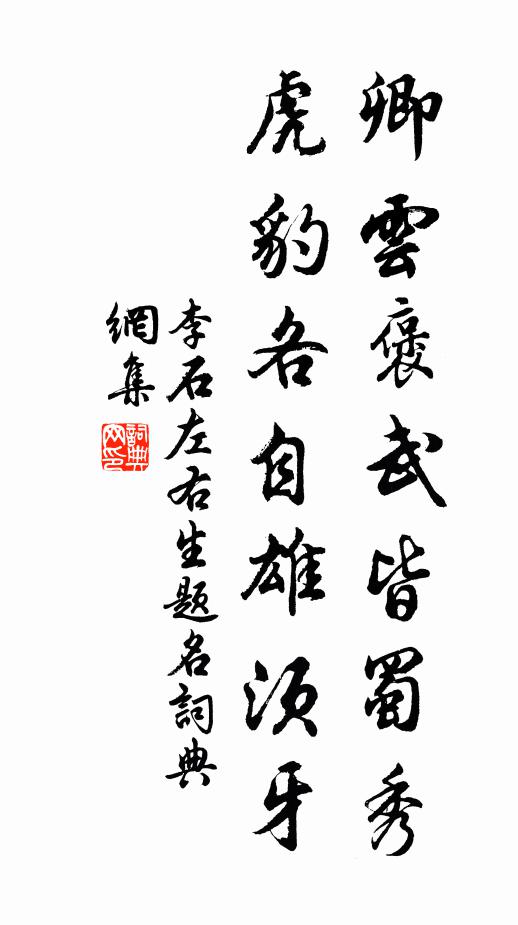 卿雲褒武皆蜀秀
虎豹各自雄須牙
李石左右生題名詞典
網集
詞典
网印